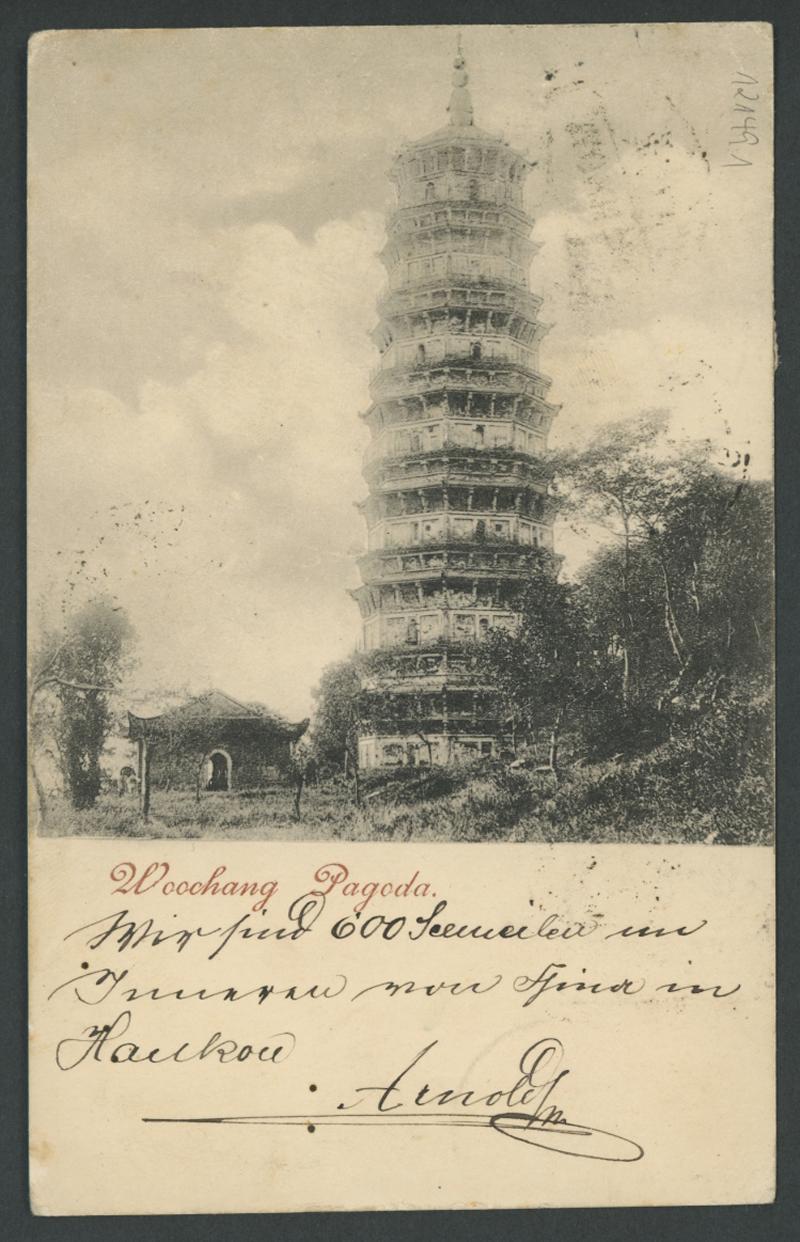 12149 1
Woochang Pagoda.
Wir sind 600 Seemeilen im
Inneren von China in
Hankou
Arnold